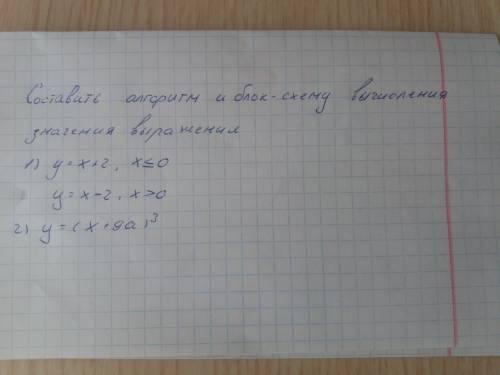 Составить алгоритм и блок-схему вычисления
значения выражения
1) y = x+2, x≤0
y = x-2, x>0
2) y = (x+9a)³